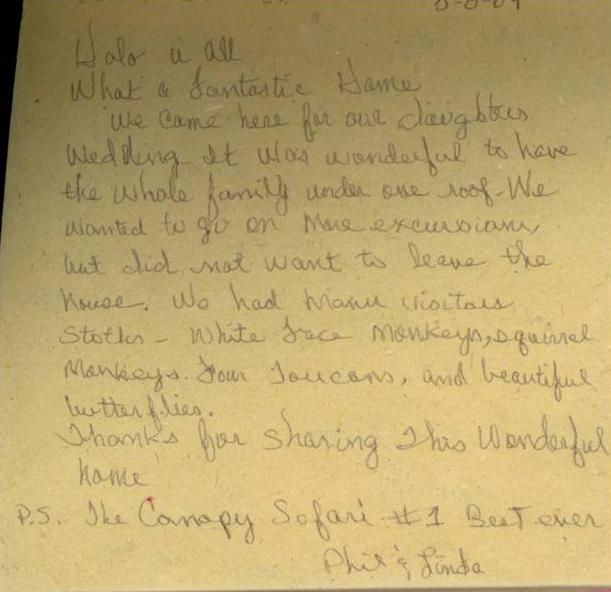 all
What a Fantastic Home
We came here for our daughters
Wedding. It was wonderful to have
the whole family under one roof. We
wanted to go on more excursions,
but did not want to leave the
house. We had many visitors
Stoths - White Face Monkeys, squirrel
Monkeys. Four Toucans, and beautiful
butterflies.
Thanks for sharing This Wonderful
home
P.S. The Canopy Safari #1 Best ever
Phil & Linda